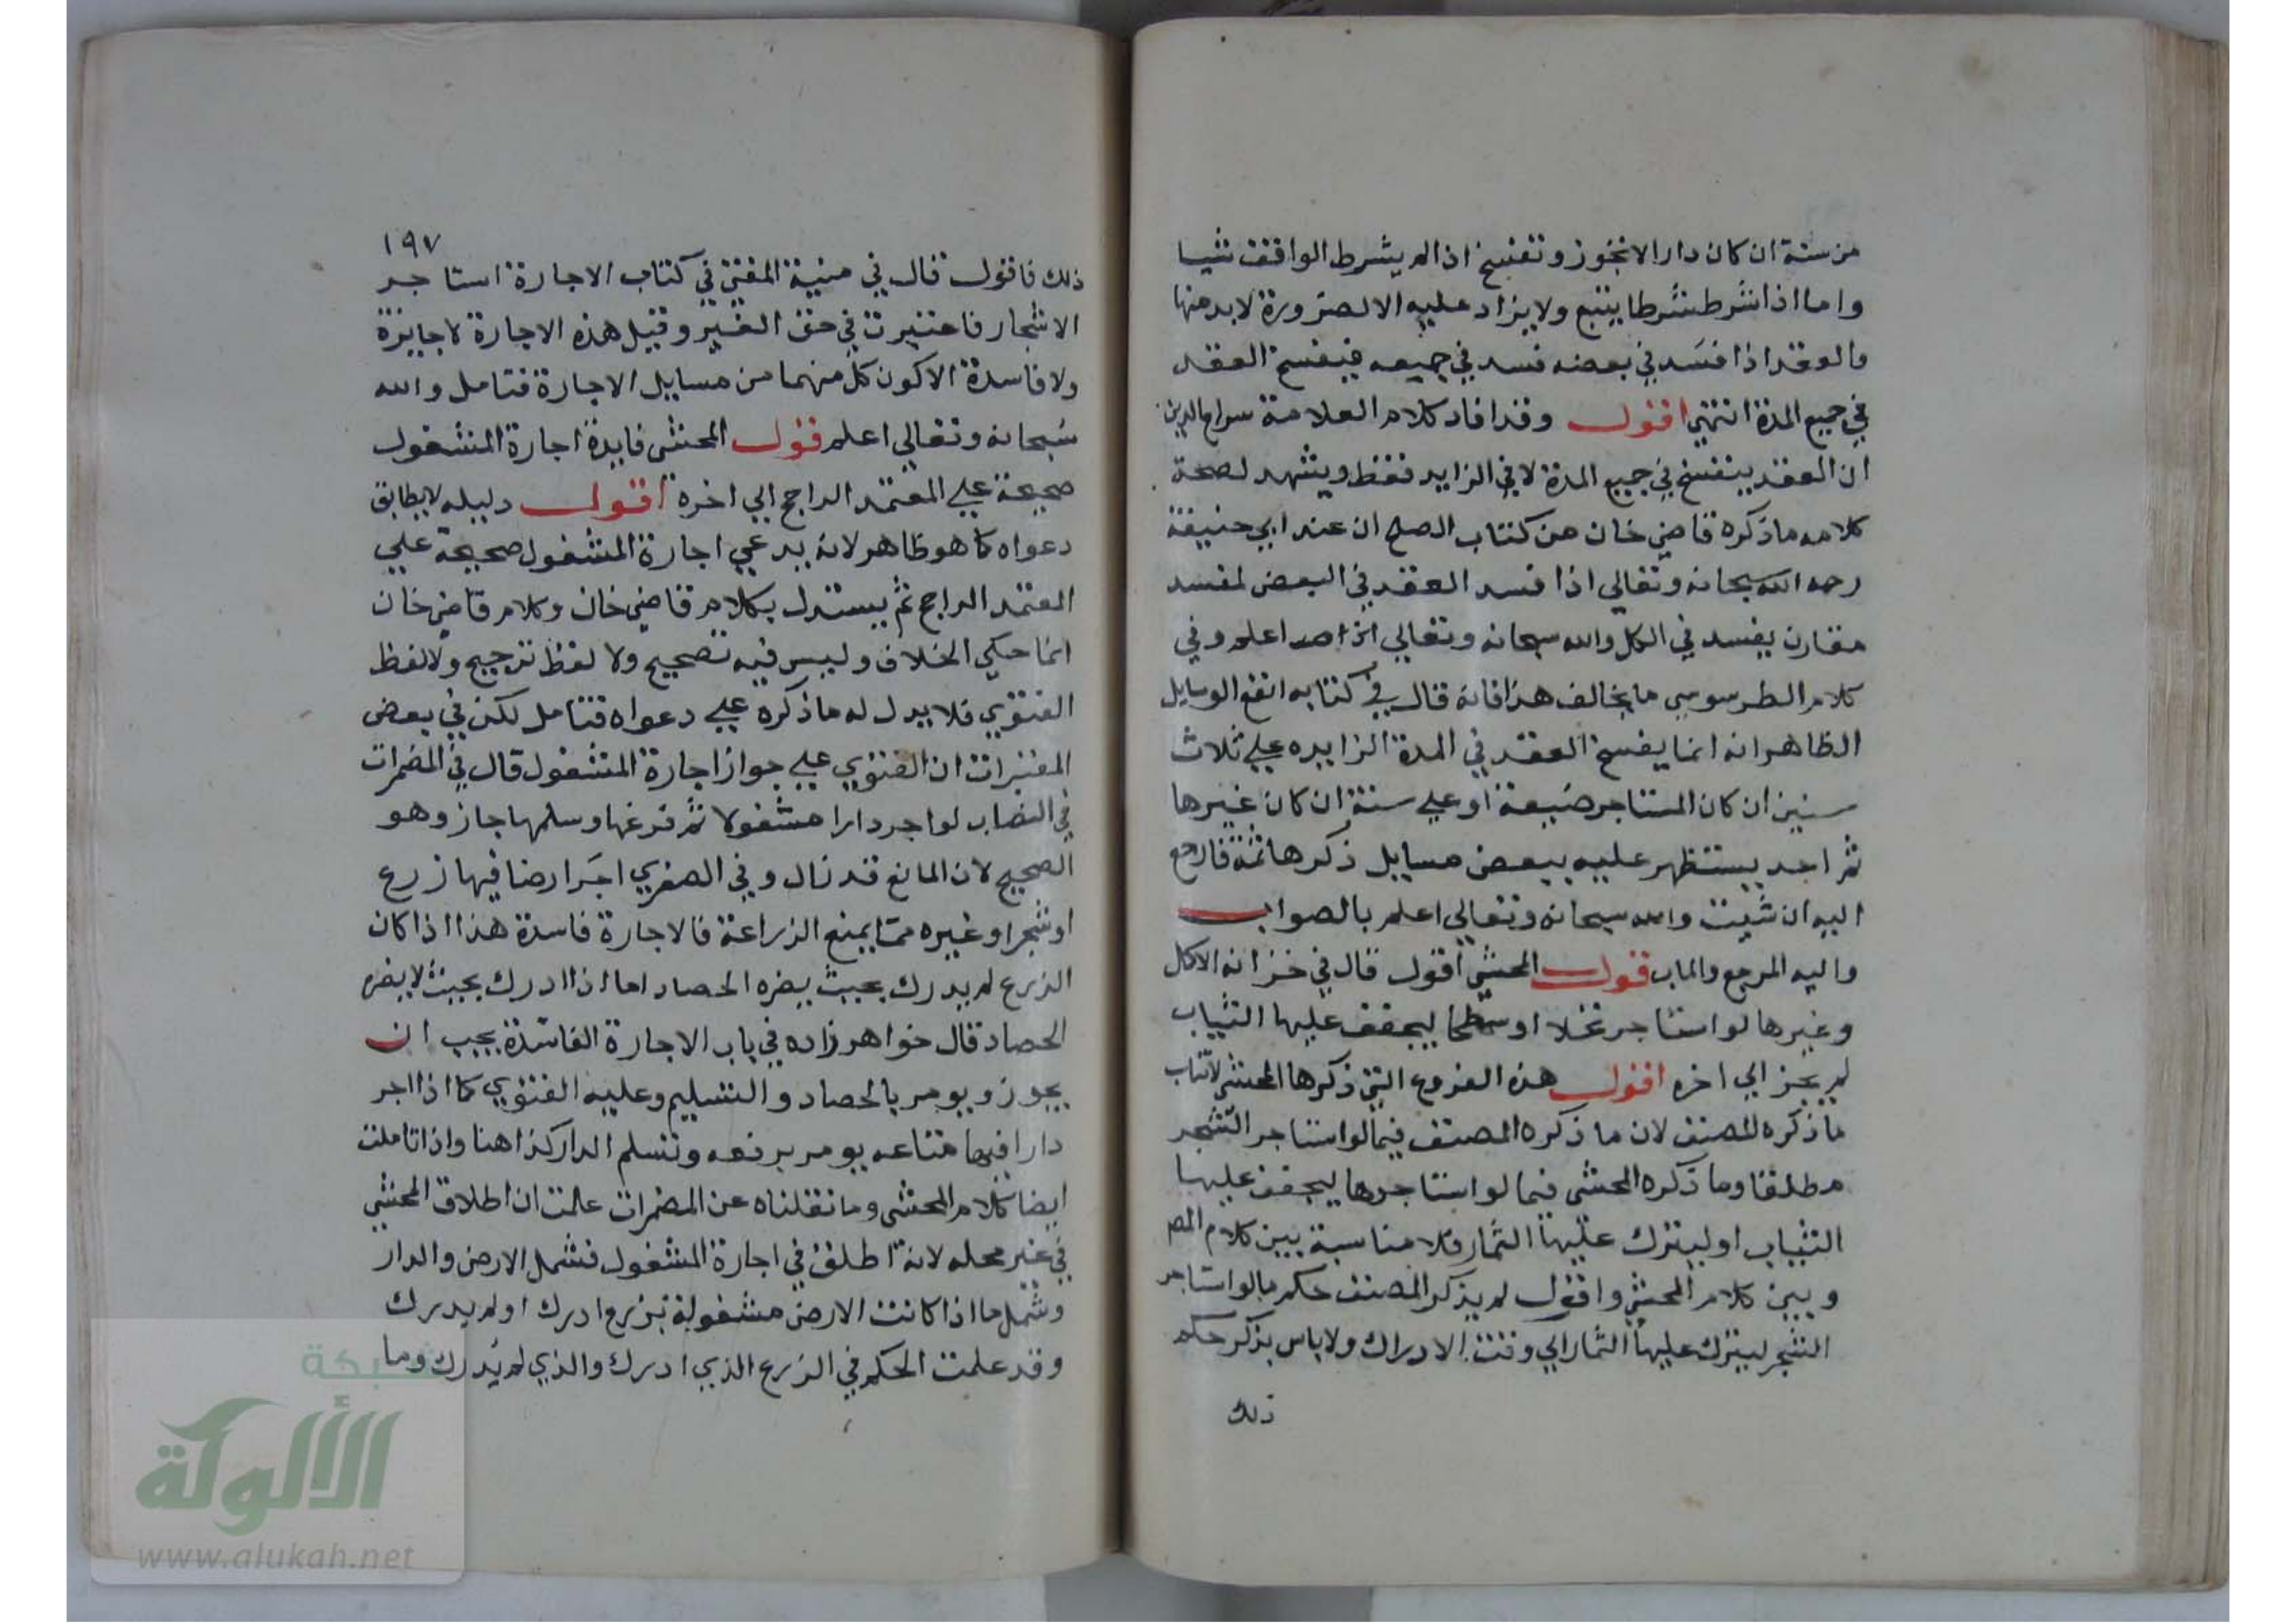 من سنة ان كان دارا لا تجوز وتفسخ اذا لم يشرط الواقف شيا
واما اذا شرط شرطا يتبع ولا يزاد عليه الا لضرورة لا بد منها
والعقد اذا فسد في بعضه فسد في جميعه فيفسخ العقد
في جميع المدة انتهي اقول وقد افاد كلام العلامة سراج الدين
ان العقد ينفسخ في جميع المدة لا في الزايد فقط ويشهد لصحة
كلامه ما ذكره قاضي خان من كتاب الصلح ان عند ابي حنيفة
رحمه الله سبحانه وتعالي اذا فسد العقد في البعض لمفسد
مقارن يفسد في الكل والله سبحانه وتعالي اعلم وفي
كلام الطرسوسي ما يخالف هذا فانه قال في كتابه انفع الوسايل
الظاهر انه انما يفسخ العقد في المدة الزايده علي ثلاث
سنين ان كان المستاجر ضيعة او علي سنة ان كان غيرها
ثم اخد يستظهر عليه ببعض مسايل ذكرها ثمة فارجع
اليه ان شيت والله سبحانه وتعالي اعلم بالصواب
واليه المرجع والماب قول المحشي اقول قال في خزانه الاكمل
وغيرها لو استاجر نخلا او سطحا ليجفف عليها الثياب
لم يجز الي اخره اقول هذه الفروع التي ذكرها المحشي لا تناسب
ما ذكره المصنف لان ما ذكره المصنف فيما لو استاجر الشجر
مطلقا وما ذكره المحشي فيما لو استاجرها ليجفف عليها
الثياب او ليترك عليها الثمار فلا مناسبة بين كلام المص
وبين كلام المحشي واقول لم يذكر المصنف حكم ما لو استاجر
الشجر ليترك عليها الثمار الي وقت الادراك ولا باس بذكر حكم
ذلك
١٩٧
ذلك فاقول قال في منية المفتي في كتاب الاجارة استاجر
الاشجار فاعتبرت في حق الغير وقيل هذه الاجارة لا جايزة
ولا فاسدة الا كون كل منهما من مسايل الاجارة فتامل والله
سبحانه وتعالي اعلم قول المحشي فايدة اجارة المشغول
صحيحة علي المعتمد الراجح الي اخره اقول دليله لا يطابق
دعواه كما هو ظاهر لانه يدعي اجارة المشغول صحيحة علي
المعتمد الراجح ثم يستدل بكلام قاضي خان وكلام قاضي خان
انما حكي الخلاف وليس فيه تصحيح ولا لفظ ترجيح ولا لفظ
الفتوي فلا يدل له ما ذكره علي دعواه فتامل لكن في بعض
المعتبرات ان الفتوي علي جواز اجارة المشغول قال في المضمرات
في النصاب لو اجر دارا مشغولا ثم فرغها وسلمها جاز وهو
الصحيح لان المانع قد زال وفي الصغري اجر ارضا فيها زرع
او شجر او غيره مما يمنع الزراعة فالاجارة فاسدة هذا اذا كان
الزرع لم يدرك بحيث يضره الحصاد اما اذا ادرك بحيث لا يضره
الحصاد قال خواهر زاده في باب الاجارة الفاسدة يجب ان
يجوز ويومر بالحصاد والتسليم وعليه الفتوي كما اذا اجر
دارا فيها متاعه يومر برفعه وتسلم الدار كذا هنا واذا تاملت
ايضا كلام المحشي وما نقلناه عن المضمرات علمت ان اطلاق المحشي
في غير محله لانه اطلق في اجارة المشغول فشمل الارض والدار
وشمل ما اذا كانت الارض مشغولة بزرع ادرك او لم يدرك
وقد علمت الحكم في الزرع الذي ادرك والذي لم يدرك وما
شبكة
الألوكة
www.alukah.net